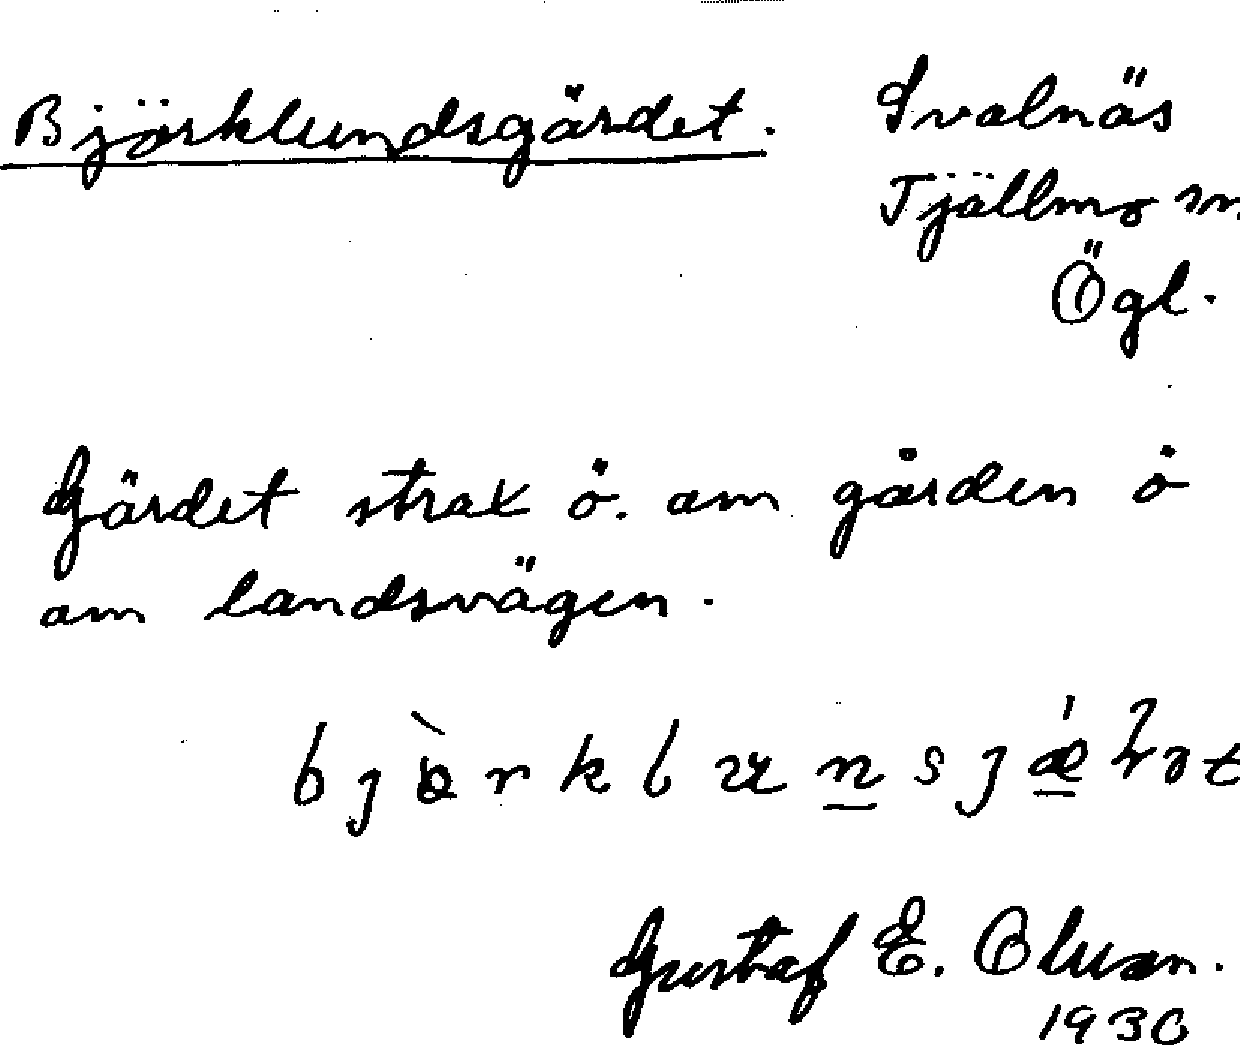 Björklundsgärdet. Svalnäs
Tjällmo sn
Ögl.
Gärdet strax ö. om gården ö
om landsvägen.
Gustaf E.
1930